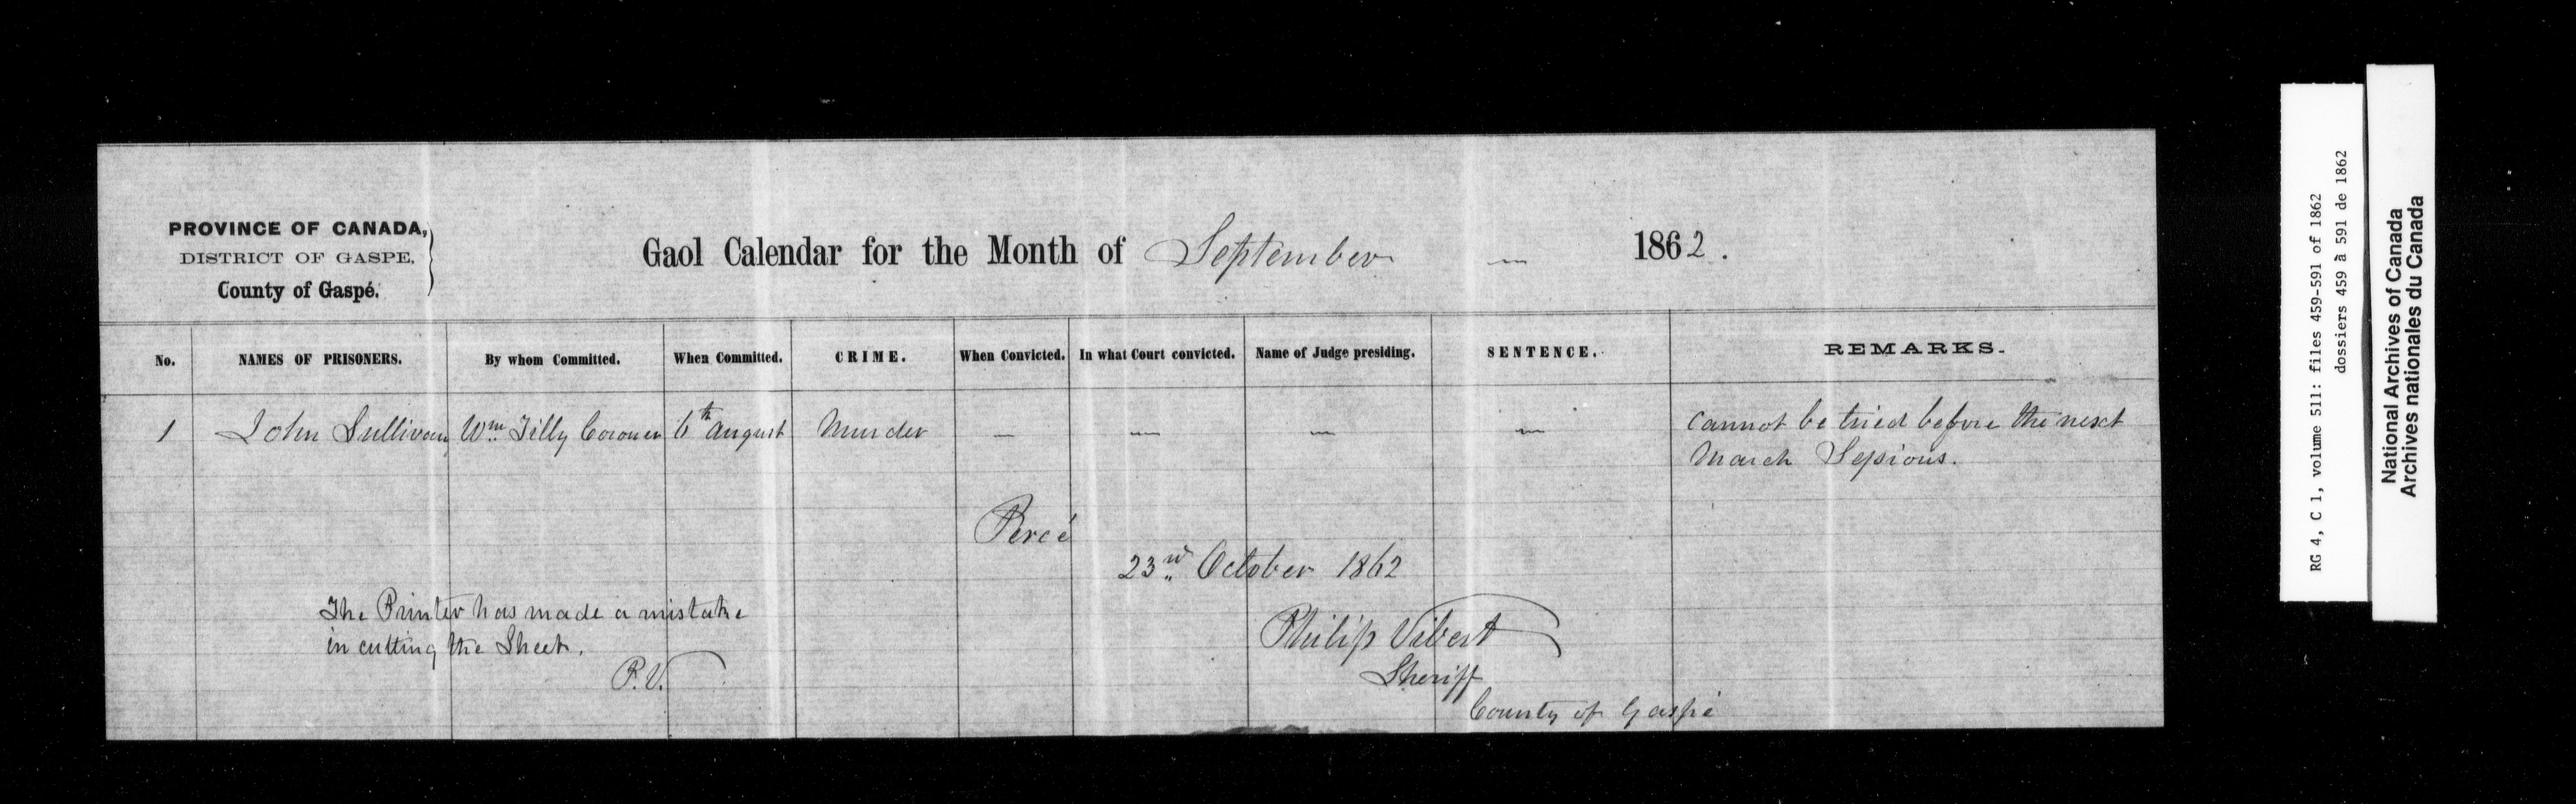 PROVINCE OF CANADA,
DISTRICT OF GASPE,
County of Gaspé.
Gaol Calendar for the Month of September — 1862.
No. NAMES OF PRISONERS. By whom Committed. When Committed. CRIME. When Convicted. In what Court convicted. Name of Judge presiding. SENTENCE. REMARKS.
1 John Sullivan Wm Tilly Coroner 6th August Murder — — — — Cannot be tried before the next
March Sessions.
Percé
23rd October 1862
The Printer has made a mistake
in cutting the Sheet.
P.V.
Philip Vibert
Sheriff
County of Gaspé
RG 4, C 1, volume 511: files 459-591 of 1862
dossiers 459 à 591 de 1862
National Archives of Canada
Archives nationales du Canada